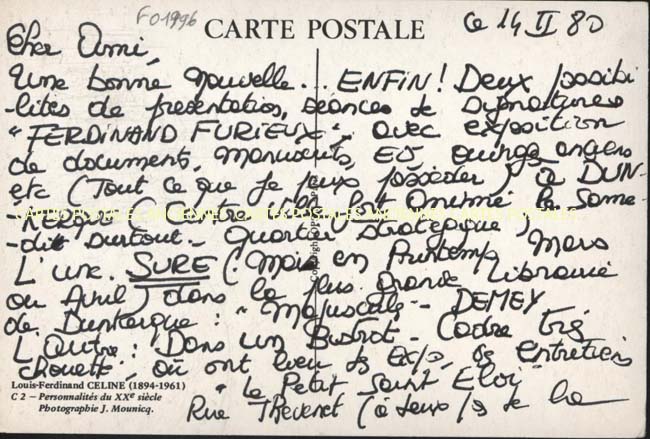 FO1996
CARTE POSTALE
Ce 14 II 80
Cher Ami,
Une bonne nouvelle... ENFIN! Deux possibi
-lités de présentation, séances de signatures
"FERDINAND FURIEUX", avec exposition
de documents, manuscrits, EO ouvrages anciens
etc (Tout ce que je puis posséder) à DUN-
KERQUE (Centre ville fort animé le Same-
di surtout - Quartier stratégique)
L'une. SURE (Mais en Printemps Mars
ou Avril) dans la plus grande Librairie
de Dunkerque: "Majuscule" - DEMEY
L'Autre: Dans un Bistrot - Cadre très
chouette, où ont lieu des Expo, des Entretiens
"Le Petit Saint Eloi"
Rue Thevenet (à deux pas de la
Louis-Ferdinand CELINE (1894-1961)
C 2 – Personnalités du XXe siècle
Photographie J. Mounicq.